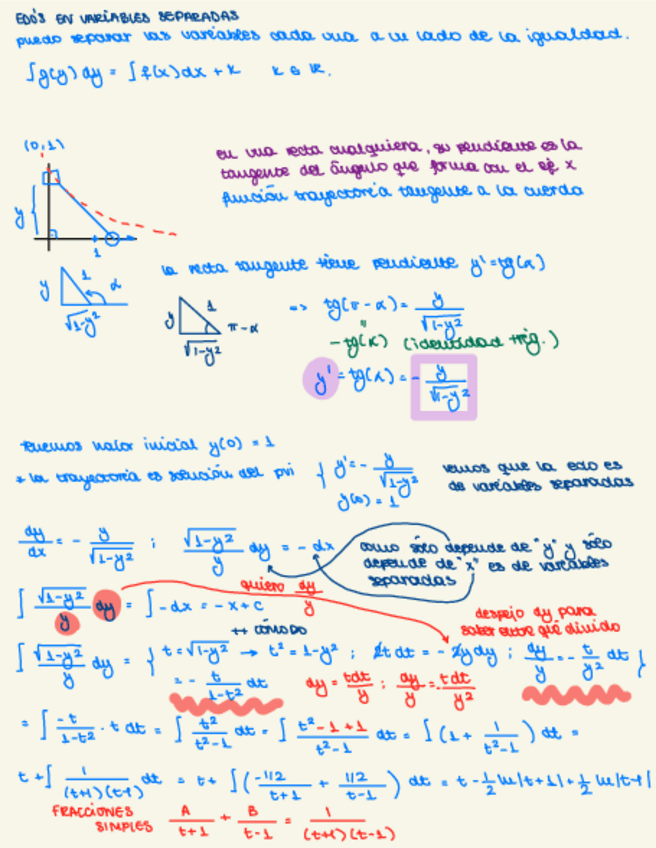 EDO'S EN VARIABLES SEPARADAS
puedo separar las variables cada una a un lado de la igualdad.
∫g(y) dy = ∫f(x) dx + k    k ∈ ℝ.
(0,1)
en una recta cualquiera, su pendiente es la
tangente del ángulo que forma con el eje x
función trayectoria tangente a la cuerda
y
1
la recta tangente tiene pendiente y' = tg(α)
y 1 α
√1-y²
y 1 π-α
√1-y²
=> tg(π-α) = y/√1-y²
"
-tg(α) (identidad trig.)
y' = tg(α) = - y/√1-y²
tenemos valor inicial y(0) = 1
* la trayectoria es solución del pvi { y' = - y/√1-y²
y(0) = 1
vemos que la edo es
de variables separadas
dy/dx = - y/√1-y² ; √1-y²/y dy = - dx
como sólo depende de "y" y sólo
depende de "x" es de variables
separadas
∫ √1-y²/y dy = ∫ -dx = -x + c
quiero dy/y
despejo dy para
saber entre qué divido
++ cómodo
∫ √1-y²/y dy = { t = √1-y² → t² = 1-y² ; 2t dt = - 2y dy ; dy/y = - t/y² dt }
= - t/1-t² dt
dy = tdt/y ; dy/y = - tdt/y²
= ∫ -t/1-t² · t dt = ∫ t²/t²-1 dt = ∫ t²-1+1/t²-1 dt = ∫ (1 + 1/t²-1) dt =
t + ∫ 1/(t+1)(t-1) dt = t + ∫ (-1/2/t+1 + 1/2/t-1) dt = t - 1/2 ln|t+1| + 1/2 ln|t-1|
FRACCIONES
SIMPLES
A/t+1 + B/t-1 = 1/(t+1)(t-1)